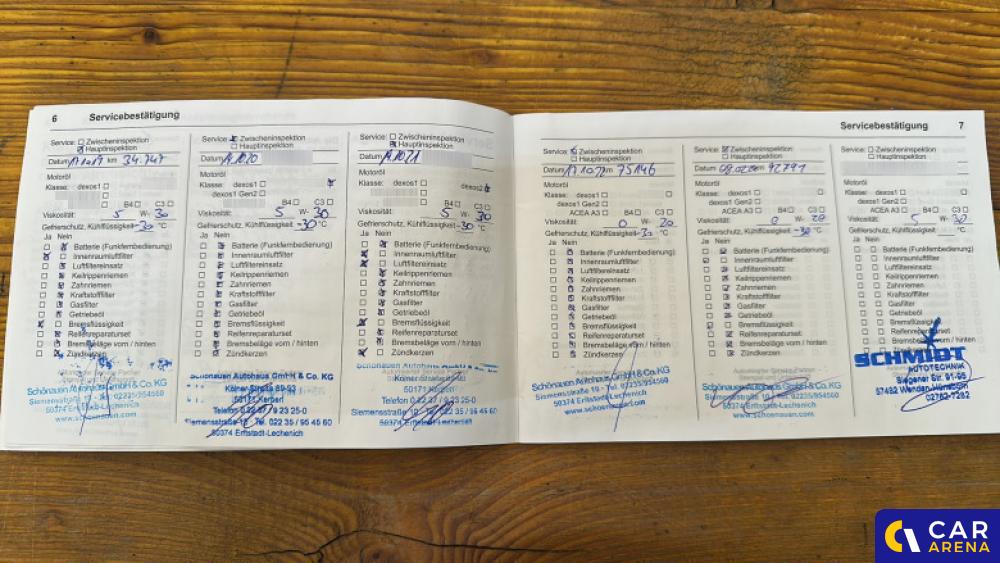 6 Servicebestätigung
Service: Zwischeninspektion
Hauptinspektion
Datum 17.10.19 km 34.747
Motoröl
Klasse: dexos1
B4 C3
Viskosität: 5 W- 30
Gefrierschutz, Kühlflüssigkeit -30 °C
Ja Nein
Batterie (Funkfernbedienung)
Innenraumluftfilter
Luftfiltereinsatz
Keilrippenriemen
Zahnriemen
Kraftstofffilter
Gasfilter
Getriebeöl
Bremsflüssigkeit
Reifenreparaturset
Bremsbeläge vorn / hinten
Zündkerzen
Schönauen Autohaus GmbH & Co. KG
Siemensstraße 10 Tel. 02235/954560
50374 Erftstadt-Lechenich
www.schoenauen.com
Service: Zwischeninspektion
Hauptinspektion
Datum
Motoröl
Klasse: dexos1
dexos1 Gen2
B4 C3
Viskosität: 5 W- 30
Gefrierschutz, Kühlflüssigkeit -30 °C
Ja Nein
Batterie (Funkfernbedienung)
Innenraumluftfilter
Luftfiltereinsatz
Keilrippenriemen
Zahnriemen
Kraftstofffilter
Gasfilter
Getriebeöl
Bremsflüssigkeit
Reifenreparaturset
Bremsbeläge vorn / hinten
Zündkerzen
Schönauen Autohaus GmbH & Co. KG
Kölner Straße
50171 Kerpen
Telefon 0 22 37 / 9 23 25-0
Siemensstraße 10 Tel. 0 22 35 / 95 45 60
50374 Erftstadt-Lechenich
Service: Zwischeninspektion
Hauptinspektion
Datum
Motoröl
Klasse: dexos1 dexos2
dexos1 Gen2
B4 C3
Viskosität: 5 W- 30
Gefrierschutz, Kühlflüssigkeit -30 °C
Ja Nein
Batterie (Funkfernbedienung)
Innenraumluftfilter
Luftfiltereinsatz
Keilrippenriemen
Zahnriemen
Kraftstofffilter
Gasfilter
Getriebeöl
Bremsflüssigkeit
Reifenreparaturset
Bremsbeläge vorn / hinten
Zündkerzen
Schönauen Autohaus GmbH & Co. KG
50171 Kerpen
Telefon 0 22 37 / 9 23 25-0
Siemensstraße 10 Tel. 0 22 35 / 95 45 60
50374 Erftstadt-Lechenich
Servicebestätigung 7
Service: Zwischeninspektion
Hauptinspektion
Datum km 75146
Motoröl
Klasse: dexos1
dexos1 Gen2
ACEA A3 B4 C3
Viskosität: 0 W- 20
Gefrierschutz, Kühlflüssigkeit °C
Ja Nein
Batterie (Funkfernbedienung)
Innenraumluftfilter
Luftfiltereinsatz
Keilrippenriemen
Zahnriemen
Kraftstofffilter
Gasfilter
Getriebeöl
Bremsflüssigkeit
Reifenreparaturset
Bremsbeläge vorn / hinten
Zündkerzen
Schönauen Autohaus GmbH & Co. KG
Siemensstraße 10 Tel. 02235/954560
50374 Erftstadt-Lechenich
www.schoenauen.com
Service: Zwischeninspektion
Hauptinspektion
Datum km 92791
Motoröl
Klasse: dexos1 dexos2
dexos1 Gen2
ACEA A3 B4 C3
Viskosität: 0 W- 20
Gefrierschutz, Kühlflüssigkeit -30 °C
Ja Nein
Batterie (Funkfernbedienung)
Innenraumluftfilter
Luftfiltereinsatz
Keilrippenriemen
Zahnriemen
Kraftstofffilter
Gasfilter
Getriebeöl
Bremsflüssigkeit
Reifenreparaturset
Bremsbeläge vorn / hinten
Zündkerzen
Schönauen Autohaus GmbH & Co. KG
Siemensstraße 10 Tel. 02235/954560
50374 Erftstadt-Lechenich
www.schoenauen.com
Service: Zwischeninspektion
Hauptinspektion
Datum
Motoröl
Klasse: dexos1
ACEA A3 B4 C3
Viskosität: 5 W- 30
Gefrierschutz, Kühlflüssigkeit °C
Ja Nein
Batterie (Funkfernbedienung)
Innenraumluftfilter
Luftfiltereinsatz
Keilrippenriemen
Zahnriemen
Kraftstofffilter
Gasfilter
Getriebeöl
Bremsflüssigkeit
Reifenreparaturset
Bremsbeläge vorn / hinten
SCHMIDT
AUTOTECHNIK
Siegener Str. 91-95
57482 Wenden-
02762-7282
CAR
ARENA